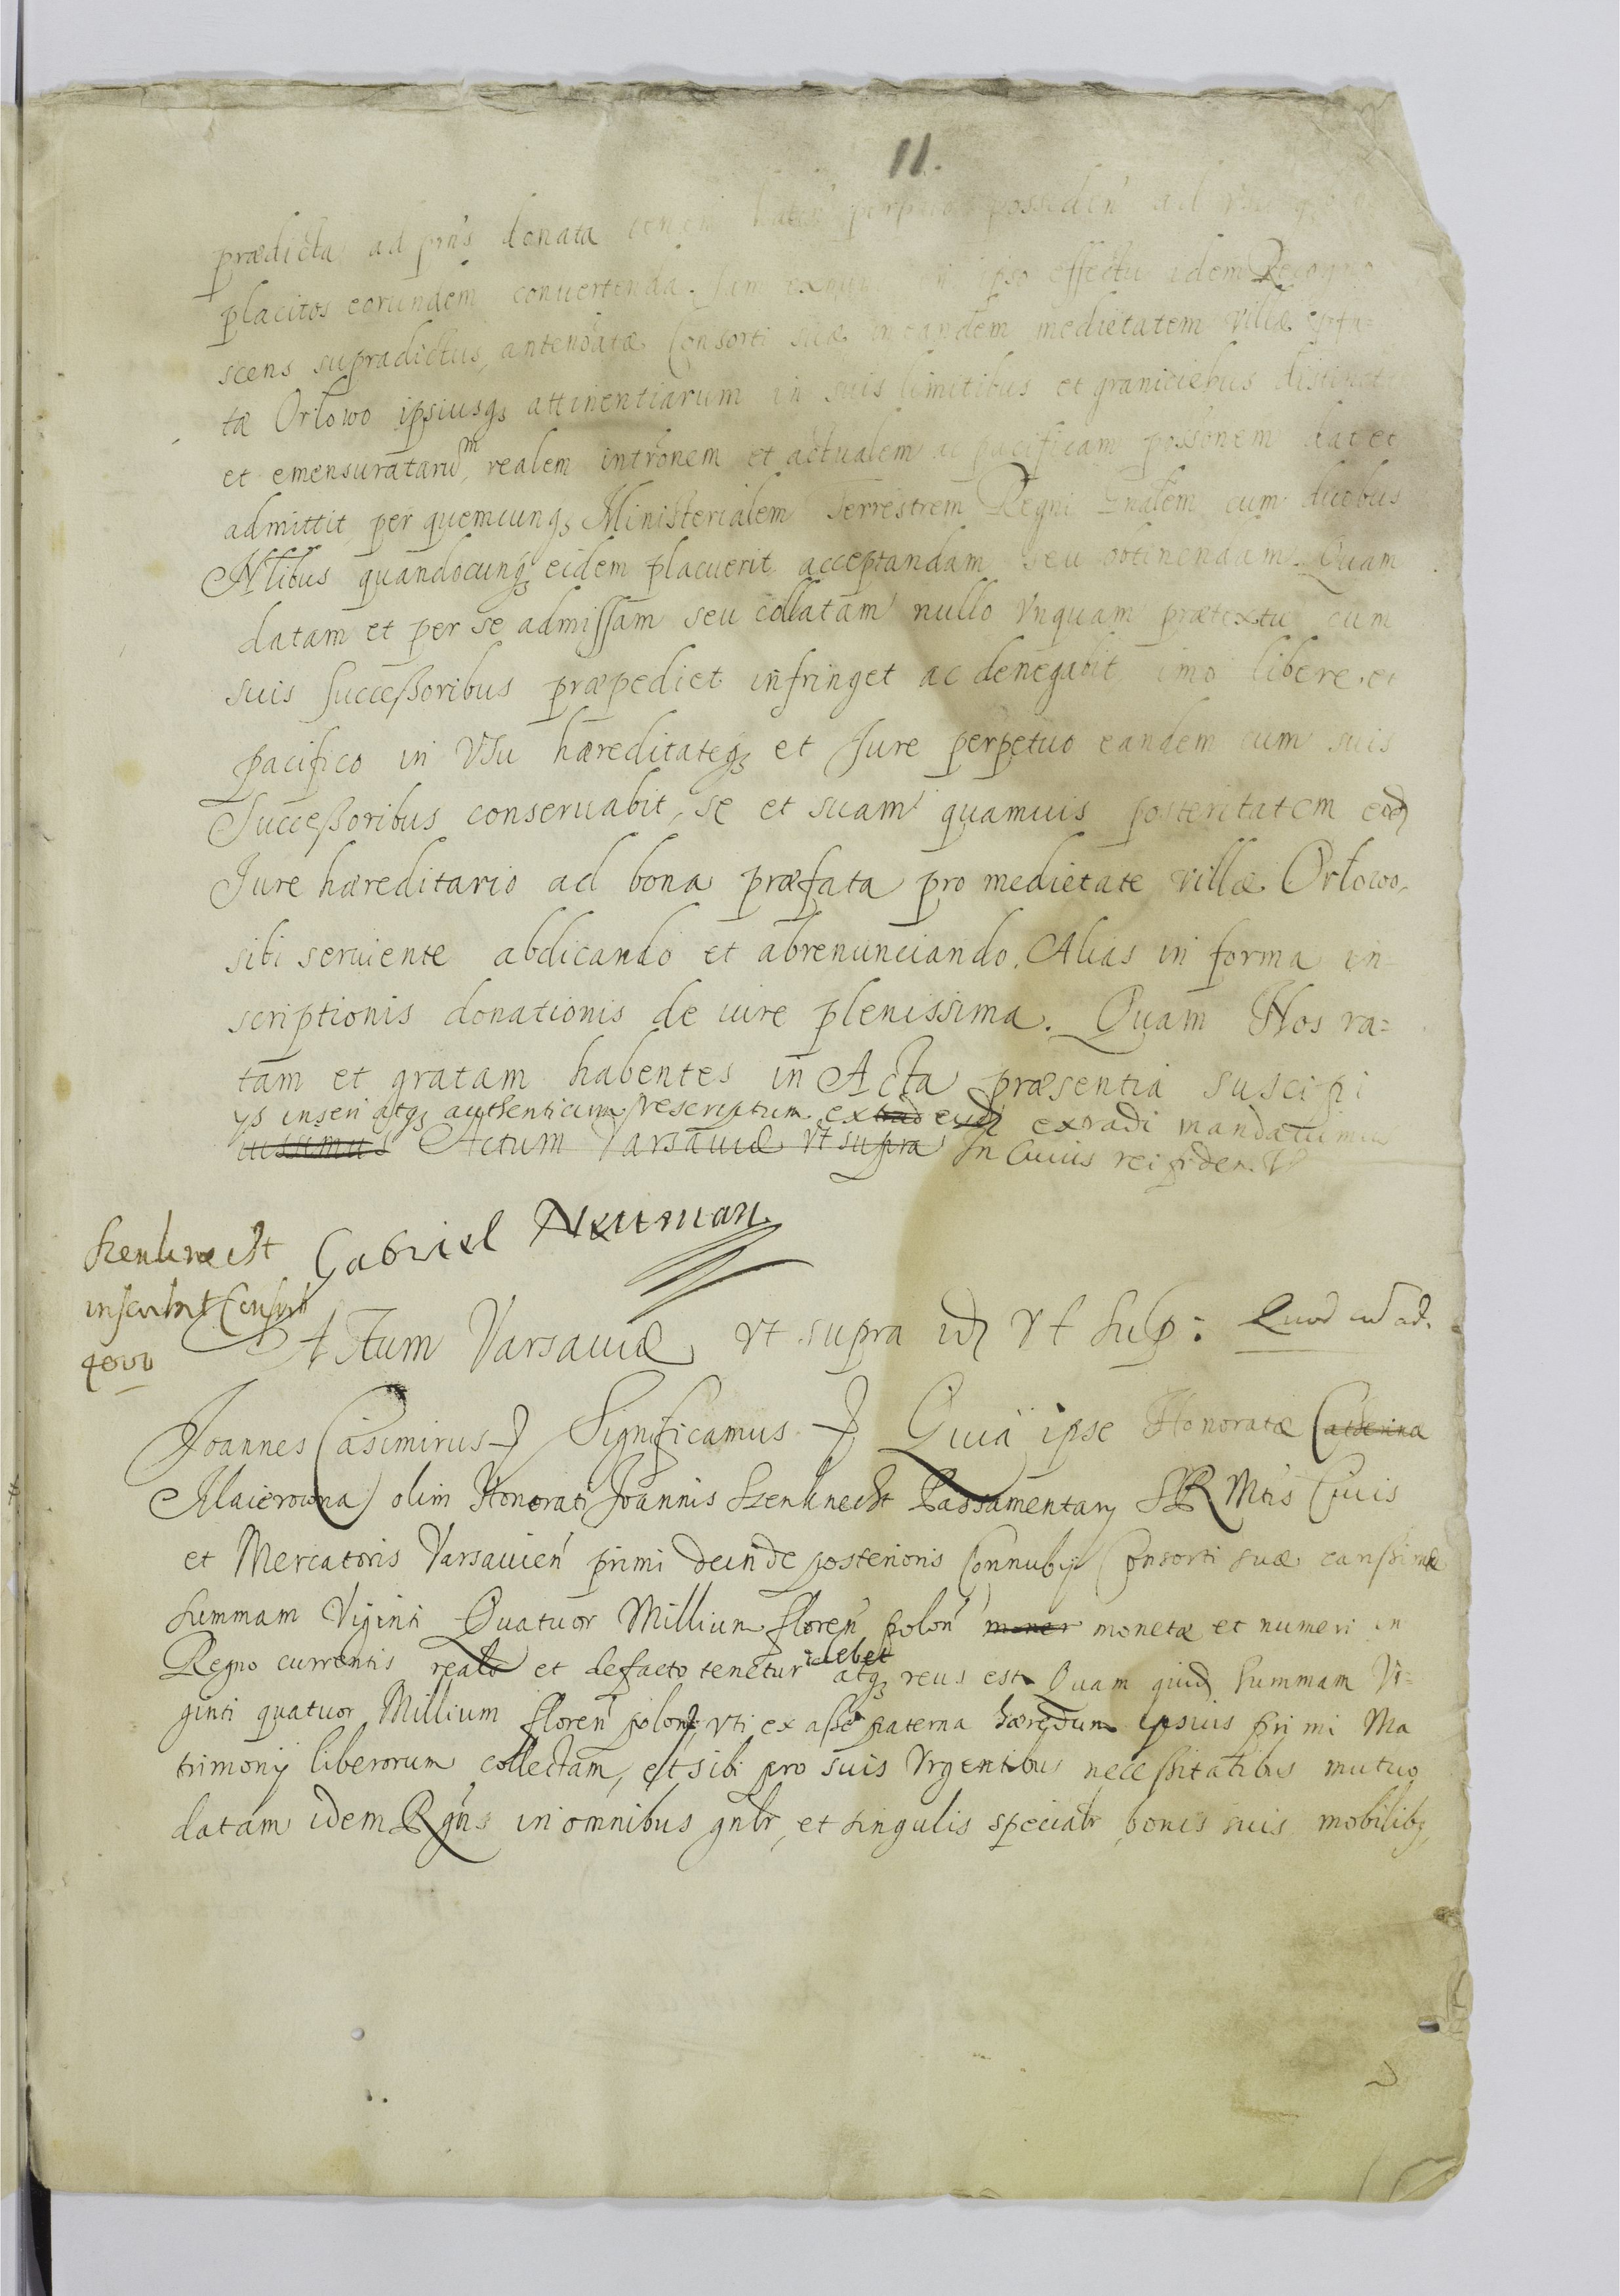 11.
prædicta ad prńs donata possiden ad
placitos eorundem conuertenda. ipso effectu idem Recogno
scens supradictus, antenoatæ Consorti suæ in eandem medietatem villæ
tæ Orłowo ipsiusq3 attinentiarum in suis limitibus et graniciebus distinct
et emensuratarum, realem intronem et actualem ac pacificam possonem dat et
admittit, per quemcunq3 Ministerialem Terrestrem Regni Gnalem cum duobus
Nlibus quandocunq3 eidem placuerit acceptandam seu obtinendam. Quam
datam et per se admissam seu collatam nullo vnquam prætextu cum
suis Successoribus præpediet infringet ac denegabit, imo libere et
pacifico in vsu hæreditateq3 et Jure perpetuo eandem cum suis
Successoribus conseruabit, se et suam quamuis posteritatem eod
Jure hæreditario ad bona præfata pro medietate villæ Orłowo,
sibi seruiente abdicando et abrenunciando. Alias in forma in-
scriptionis donationis de iure plenissima. Quam Nos ra=
tam et gratam habentes in Acta præsentia suscipi
ijs inseri atq3 authenticum rescriptum extrad eod extradi mandauimus
iussimus Actum Varsauiæ vt supra In Cuius rei fidem
Gabriel Neuman
Szenknecht
inscribit Consorti
Actum Varsauiæ vt supra id vt sup: Quod ad ad.
Joannes Casimirus Significamus Quia ipse Honoratæ Catherina
Maierowna olim Honorati Joannis Szenknecht Passamentary SRMtis Ciuis
et Mercatoris Varsauien primi deinde posterioris Connubij Consorti suæ carissimæ
summam Viginti Quatuor Millium floren polon moner monetæ et numeri in
Regno currentis realr et defacto tenetur debet atq3 reus est. Quam quid summam Vi=
ginti quatuor Millium floren polon, vti ex asse paterna hæredum ipsius primi Ma
trimonij liberorum collectam, et sibi pro suis Vrgentibus necessitatibus mutuo
datam idem Rgns in omnibus gnlr, et singulis specialr bonis suis mobilib3,